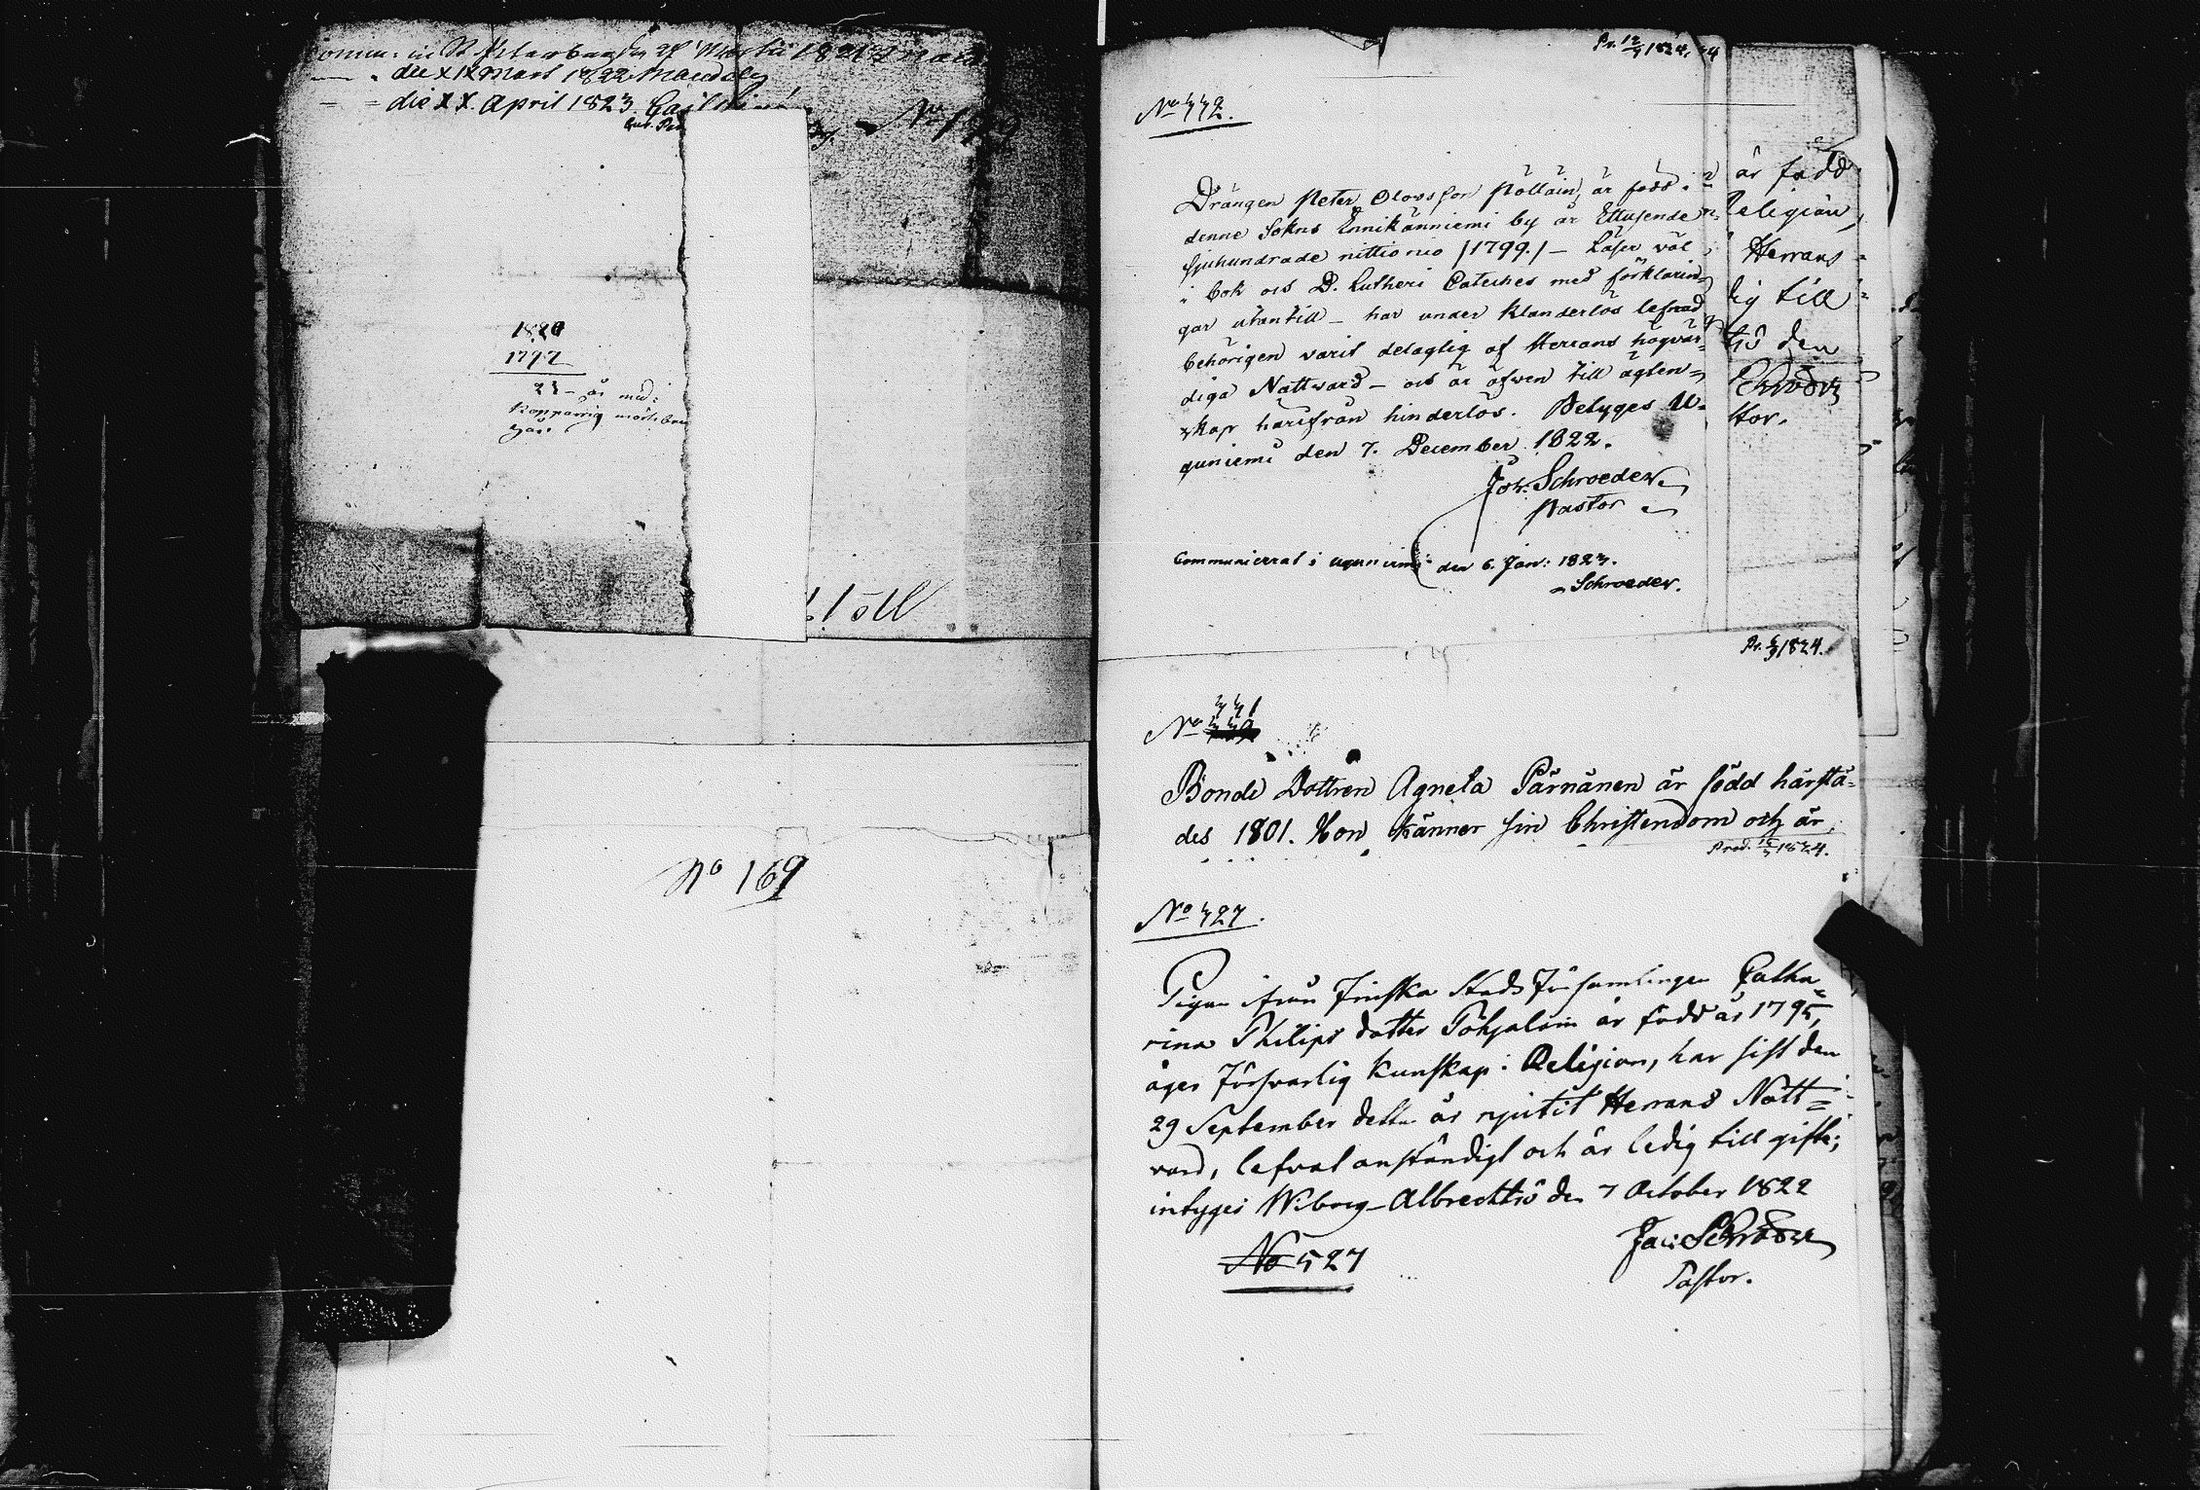 die XIX Mart 1822
die XX. April 1823
1820
1797
23 – år med
No 169
Pr. 12/3 1824.
No 332.
Drängen Peter Olovsson Pölläin, är född i
denne Sokns Ennikänniemi by år Ettusende
sjuhundrade nittionio /1799./ – Läser väl
i bok och D. Lutheri Cateches med förklarin-
gar utantill – har under klanderlös lefnad
behörigen varit delagtig af Herrans högvär-
diga Nattward – och är äfwen till ägten-
skap härifrån hinderlös. Betyges U-
guniemi den 7. December 1822.
Joh: Schroeder
Pastor
Communicerat i Uguniemi den 6. Jan: 1823.
Schroeder.
är född
Religion,
Herrans
dig till
tsö den
Schröder
stor.
Pr. 1824.
No 331
Bonde Dottren Agneta Pärnänen är född härstä-
des 1801. Hon känner sin Christendom och är
Prod. 12/3 1824.
No 327.
Pigan ifrån Finska Stads Församlingen Catha-
rina Philips dotter Pohjalain är född år 1795,
äger försvarlig kunskap i Religion, har sist den
29 September detta år njutit Herrans Natt-
vard, lefvat anständigt och är ledig till gifte;
intygas Wiborg – Albrechtsö den 7 October 1822
Jac: Schröder
Pastor.
No 527